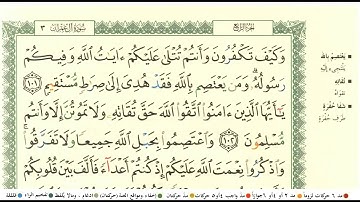 سورة آل عمران ٣
الجزء الرابع
وَكَيْفَ تَكْفُرُونَ وَأَنتُمْ تُتْلَىٰ عَلَيْكُمْ ءَايَٰتُ ٱللَّهِ وَفِيكُمْ
رَسُولُهُۥ ۗ وَمَن يَعْتَصِم بِٱللَّهِ فَقَدْ هُدِىَ إِلَىٰ صِرَٰطٍ مُّسْتَقِيمٍ ١٠١
يَٰٓأَيُّهَا ٱلَّذِينَ ءَامَنُوا۟ ٱتَّقُوا۟ ٱللَّهَ حَقَّ تُقَاتِهِۦ وَلَا تَمُوتُنَّ إِلَّا وَأَنتُم
مُّسْلِمُونَ ١٠٢ وَٱعْتَصِمُوا۟ بِحَبْلِ ٱللَّهِ جَمِيعًا وَلَا تَفَرَّقُوا۟ ۚ
وَٱذْكُرُوا۟ نِعْمَتَ ٱللَّهِ عَلَيْكُمْ إِذْ كُنتُمْ أَعْدَآءً فَأَلَّفَ بَيْنَ قُلُوبِكُمْ
يعتصم بالله
تقاته
شفا حفرة
طرف حفرة